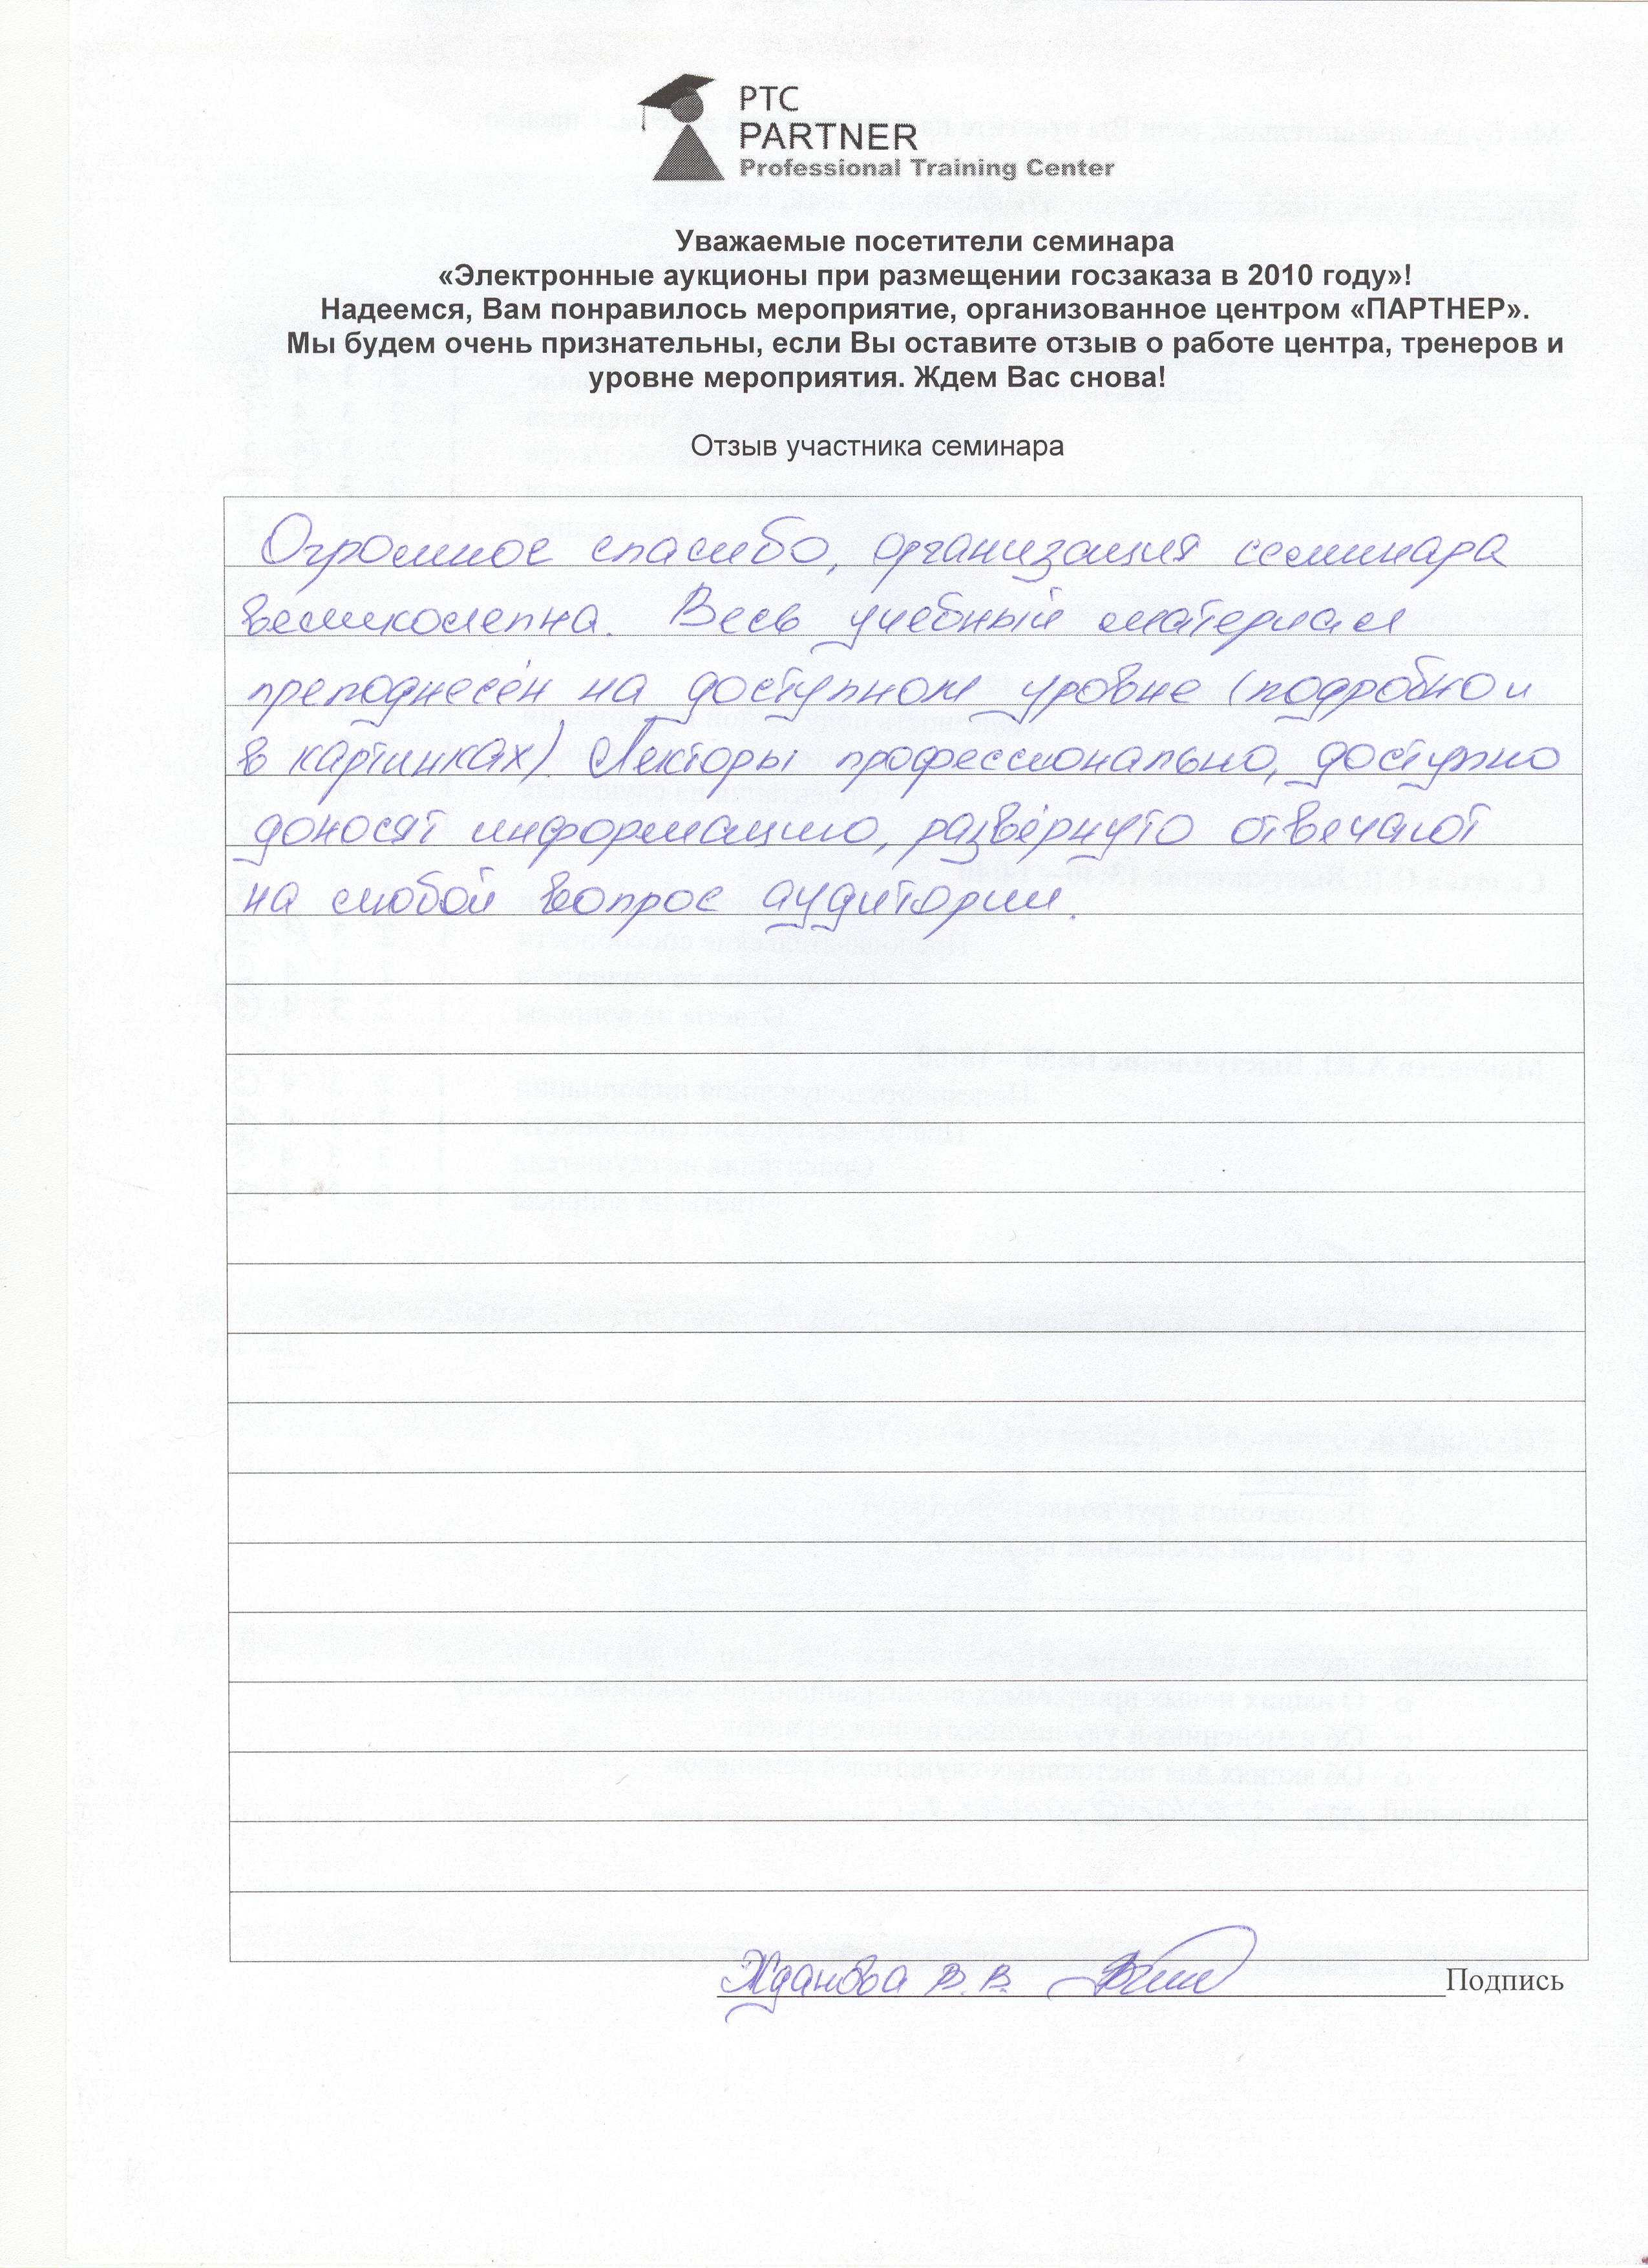 PTC
PARTNER
Professional Training Center
Уважаемые посетители семинара
«Электронные аукционы при размещении госзаказа в 2010 году»!
Надеемся, Вам понравилось мероприятие, организованное центром «ПАРТНЕР».
Мы будем очень признательны, если Вы оставите отзыв о работе центра, тренеров и
уровне мероприятия. Ждем Вас снова!
Отзыв участника семинара
Огромное спасибо, организация семинара
великолепна. Весь учебный материал
преподнесён на доступном уровне (подробно и
в картинках). Лекторы профессионально, доступно
доносят информацию, развёрнуто отвечают
на любой вопрос аудитории.
Жданова В.В. Подпись